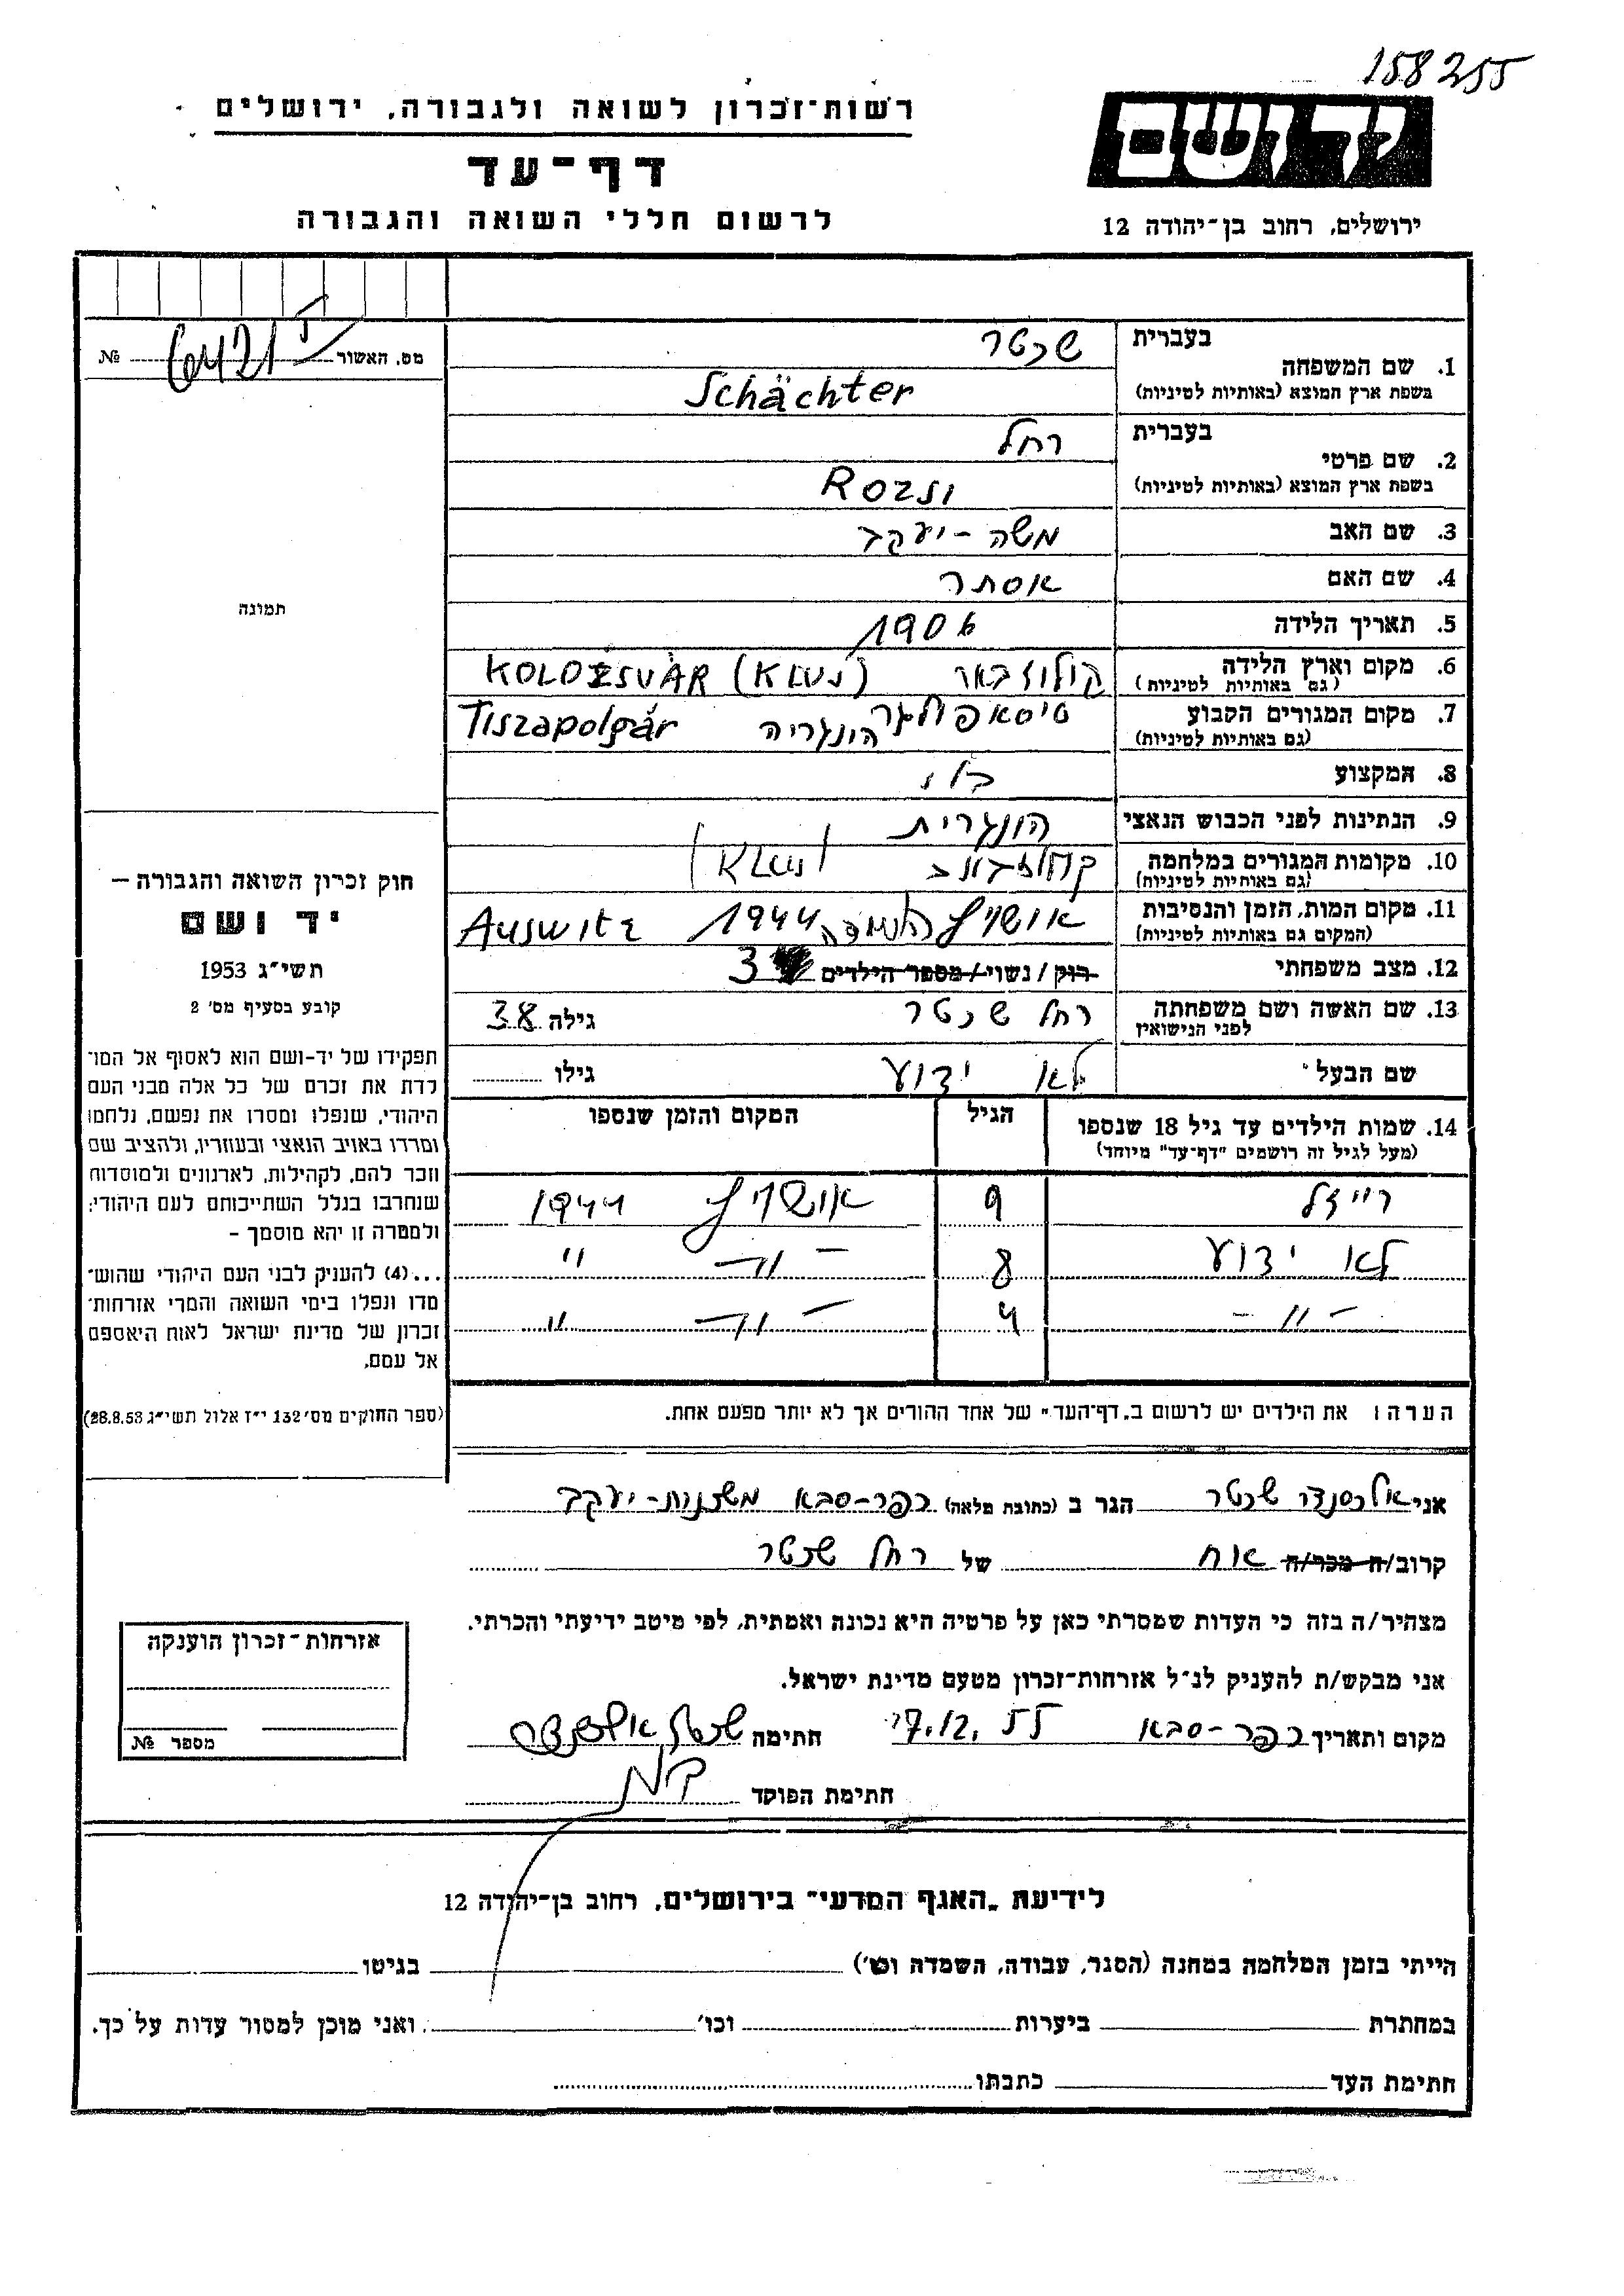 158255
רשות־זכרון לשואה ולגבורה, ירושלים
דף־עד
לרשום חללי השואה והגבורה
יד ושם
ירושלים, רחוב בן־יהודה 12
מס. האשור 6421 №
1. שם המשפחה בעברית שכטר
בשפת ארץ המוצא (באותיות לטיניות) Schächter
2. שם פרטי בעברית רחל
בשפת ארץ המוצא (באותיות לטיניות) Rozsi
3. שם האב משה - יעקב
4. שם האם אסתר
5. תאריך הלידה 1906
6. מקום וארץ הלידה קולוזבאר KOLOZSVÁR (KLUJ)
(גם באותיות לטיניות)
7. מקום המגורים הקבוע טיסאפולגר הונגריה Tiszapolgár
(גם באותיות לטיניות)
8. המקצוע
9. הנתינות לפני הכבוש הנאצי הונגרית
10. מקומות המגורים במלחמה (KLUJ)
(גם באותיות לטיניות)
11. מקום המות, הזמן והנסיבות אושויץ 1944 Auswitz
(המקום גם באותיות לטיניות)
12. מצב משפחתי רוק / נשוי / מספר הילדים 3
13. שם האשה ושם משפחתה רחל שכטר גילה 38
לפני הנישואין
שם הבעל לא ידוע גילו
14. שמות הילדים עד גיל 18 שנספו הגיל המקום והזמן שנספו
(מעל לגיל זה רושמים "דף־עד" מיוחד)
רייזל 9 אושויץ 1944
לא ידוע 8 - " - "
- " - 4 - " - "
הערה: את הילדים יש לרשום ב„דף־העד" של אחד ההורים אך לא יותר מפעם אחת.
תמונה
חוק זכרון השואה והגבורה —
יד ושם
תשי״ג 1953
קובע בסעיף מס׳ 2
תפקידו של יד-ושם הוא לאסוף אל המו־
לדת את זכרם של כל אלה מבני העם
היהודי, שנפלו ומסרו את נפשם, נלחמו
ומרדו באויב הנאצי ובעוזריו, ולהציב שם
וזכר להם, לקהילות, לארגונים ולמוסדות
שנחרבו בגלל השתייכותם לעם היהודי;
ולמטרה זו יהא מוסמך -
...(4) להעניק לבני העם היהודי שהוש־
מדו ונפלו בימי השואה והמרי אזרחות־
זכרון של מדינת ישראל לאות היאספם
אל עמם.
(ספר החוקים מס׳ 132 י״ז אלול תשי״ג 28.8.53)
אני אלכסנדר שכטר הגר ב (כתובת מלאה) כפר-סבא משכנות-יעקב
קרוב/ה מכר/ה אח של רחל שכטר
מצהיר/ה בזה כי העדות שמסרתי כאן על פרטיה היא נכונה ואמתית, לפי מיטב ידיעתי והכרתי.
אני מבקש/ת להעניק לנ״ל אזרחות־זכרון מטעם מדינת ישראל.
מקום ותאריך כפר-סבא 17.12.55 חתימה שכטר אלכסנדר
חתימת הפוקד
אזרחות־זכרון הוענקה
מספר №
לידיעת „האגף המדעי" בירושלים, רחוב בן־יהודה 12
הייתי בזמן המלחמה במחנה (הסגר, עבודה, השמדה וכו׳) בגיטו
במחתרת ביערות וכו׳ ואני מוכן למסור עדות על כך.
חתימת העד כתבתו